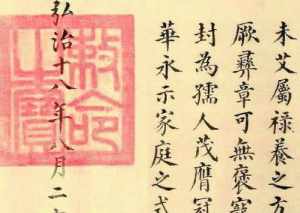 未艾屬祿養之方
厥彝章可無褒寵
封為孺人茂膺冠
華永示家庭之式
弘治十八年八月二
敕命之寶